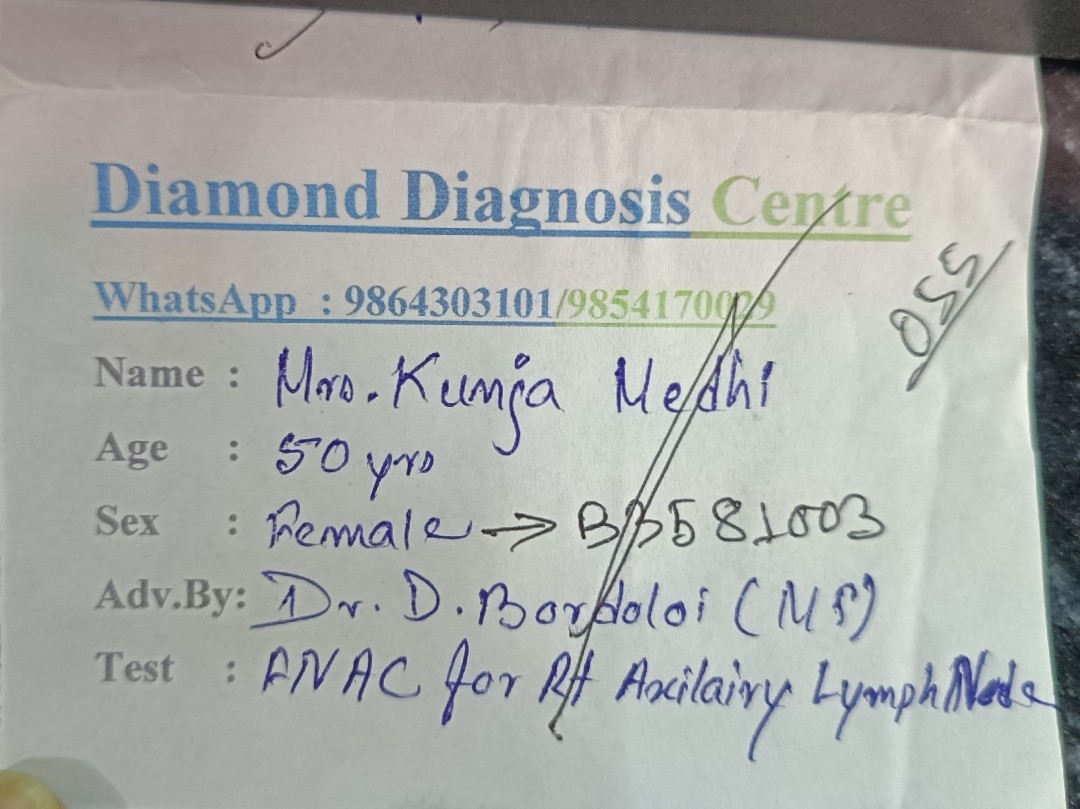 Diamond Diagnosis Centre
550
WhatsApp : 9864303101/9854170029
Name : Mrs. Kunja Medhi
Age : 50 yrs
Sex : Female → BB581003
Adv.By: Dr. D. Bordoloi (MS)
Test : FNAC for Rt Axilairy Lymph Node